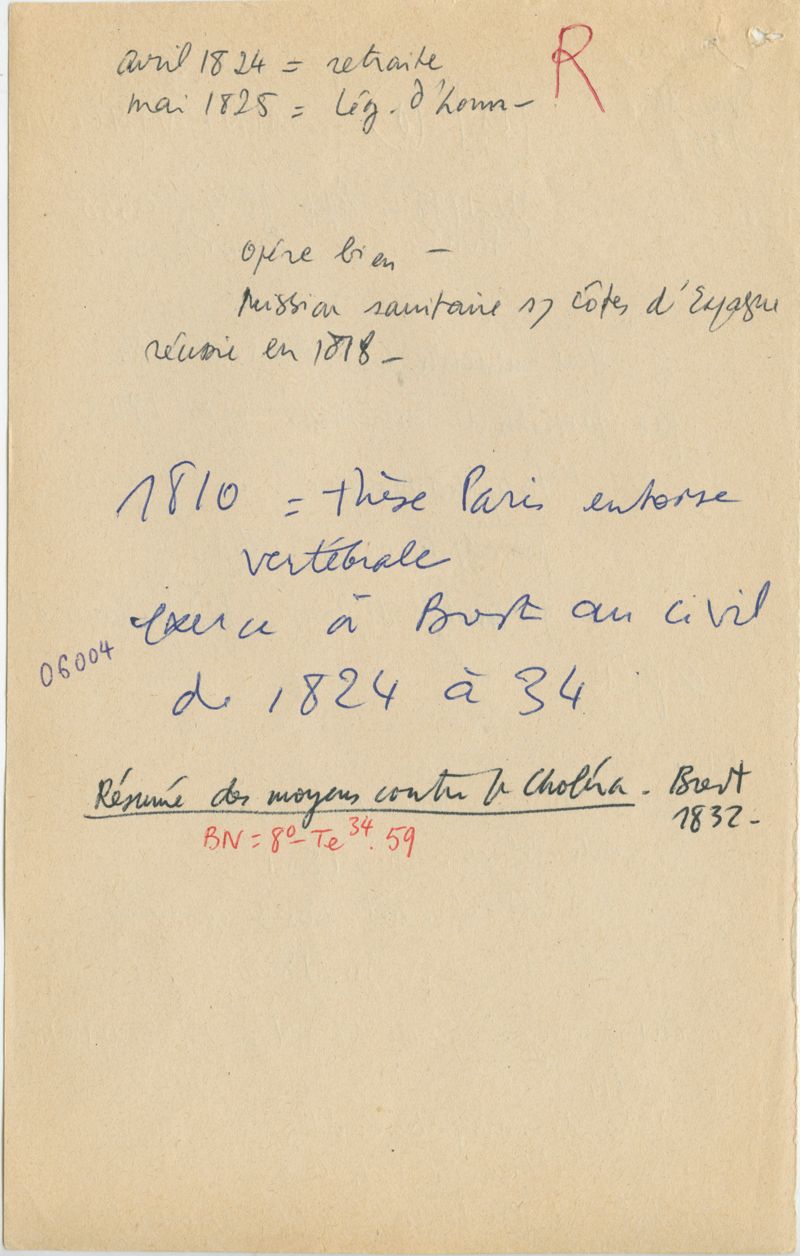 avril 1824 = retraite
R
mai 1825 = Lég. d'honn-
opère bien -
Mission sanitaire s/ côtes d'Espagne
réussie en 1818 -
1810 = thèse Paris entorse
vertébrale
exerce à Brest au civil
06004
de 1824 à 34
Résumé des moyens contre le Choléra. Brest
1832-
BN = 8º Te 34. 59